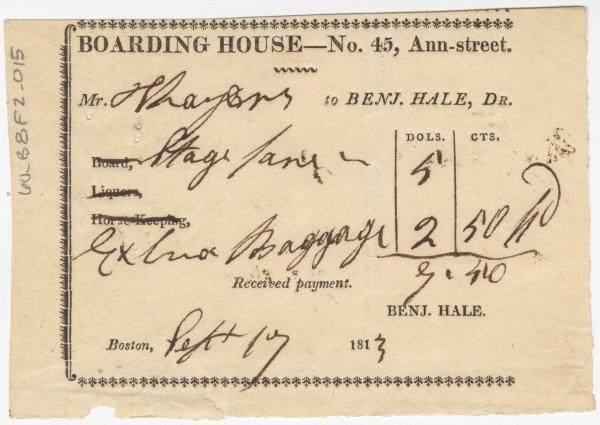 BOARDING HOUSE—No. 45, Ann-street.
Mr. to BENJ. HALE, Dr.
DOLS. CTS.
Board, Stage fare 5
Liquors,
Horse-Keeping,
Extra Baggage 2 50
7.50
Received payment.
BENJ. HALE.
Boston, Sept 17 1813
W_B8F2-015